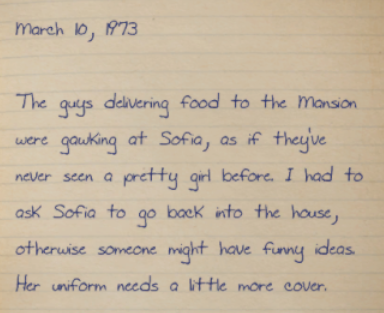 March 10, 1973
The guys delivering food to the Mansion
were gawking at Sofia, as if they've
never seen a pretty girl before. I had to
ask Sofia to go back into the house,
otherwise someone might have funny ideas.
Her uniform needs a little more cover.